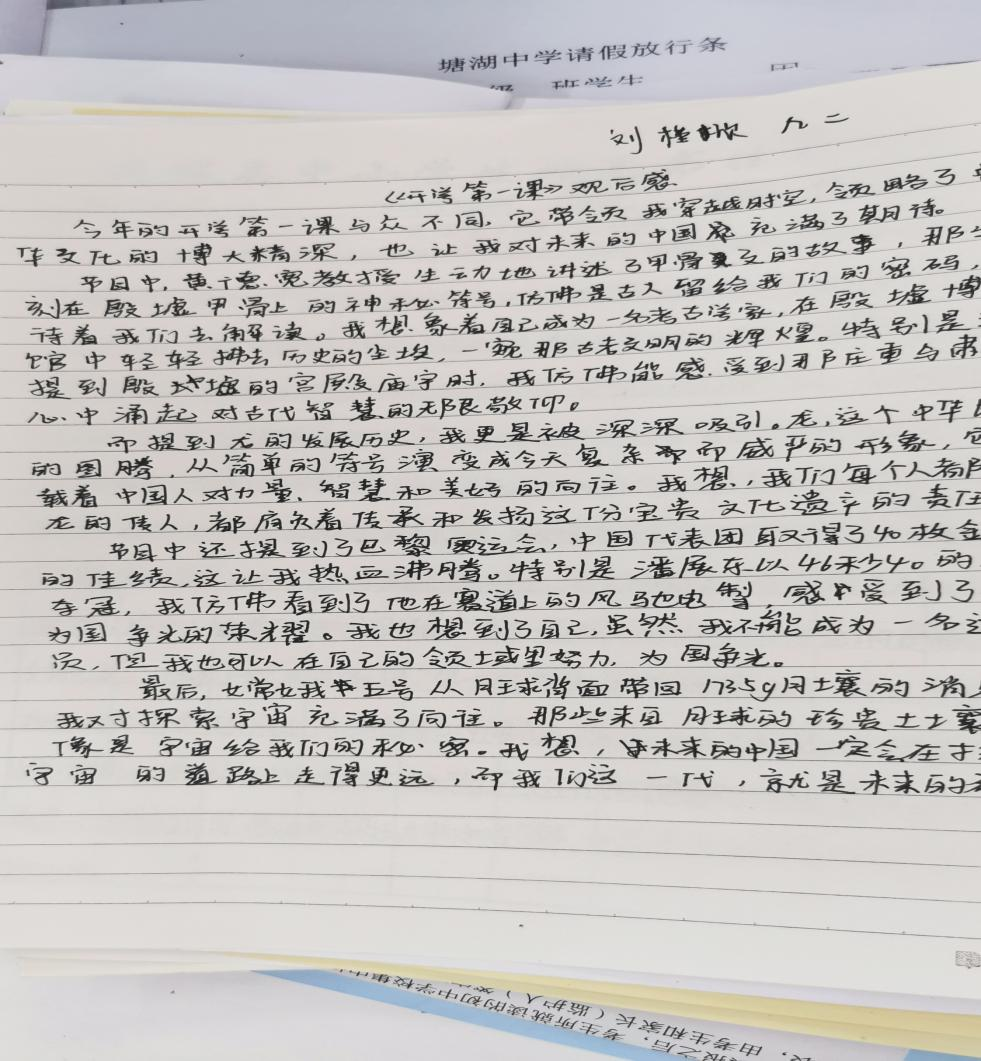 塘湖中学请假放行条
级 班学生
刘 九二
《开学第一课》观后感
今年的开学第一课与众不同,它带领我穿越时空,领略了
华文化的博大精深,也让我对未来的中国充满了期待。
节目中,黄德宽教授生动地讲述了甲骨文的故事,那
刻在殷墟甲骨上的神秘符号,仿佛是古人留给我们的密码,
待着我们去解读。我想象着自己成为一名考古学家,在殷墟博
馆中轻轻拂去历史的尘埃,一窥那古老文明的辉煌。特别是
提到殷墟的宫殿庙宇时,我仿佛能感受到那庄重与肃
心中涌起对古代智慧的无限敬仰。
而提到龙的发展历史,我更是被深深吸引。龙,这个中华
的图腾,从简单的符号演变成今天复杂而威严的形象,
载着中国人对力量、智慧和美好的向往。我想,我们每个人都
龙的传人,都肩负着传承和发扬这份宝贵文化遗产的责任
节目中还提到了巴黎奥运会,中国代表团取得了40枚金
的佳绩,这让我热血沸腾。特别是潘展乐以46秒40的
夺冠,我仿佛看到了他在赛道上的风驰电掣,感受到了
为国争光的荣耀。我也想到了自己,虽然我不能成为一名
员,但我也可以在自己的领域里努力,为国争光。
最后,嫦娥五号从月球背面带回1735g月壤的消
我对探索宇宙充满了向往。那些来自月球的珍贵土壤
像是宇宙给我们的秘密。我想,未来的中国一定会在
宇宙的道路上走得更远,而我们这一代,就是未来的
由考生和家长(监护人)
考生所就读的初中学校集中